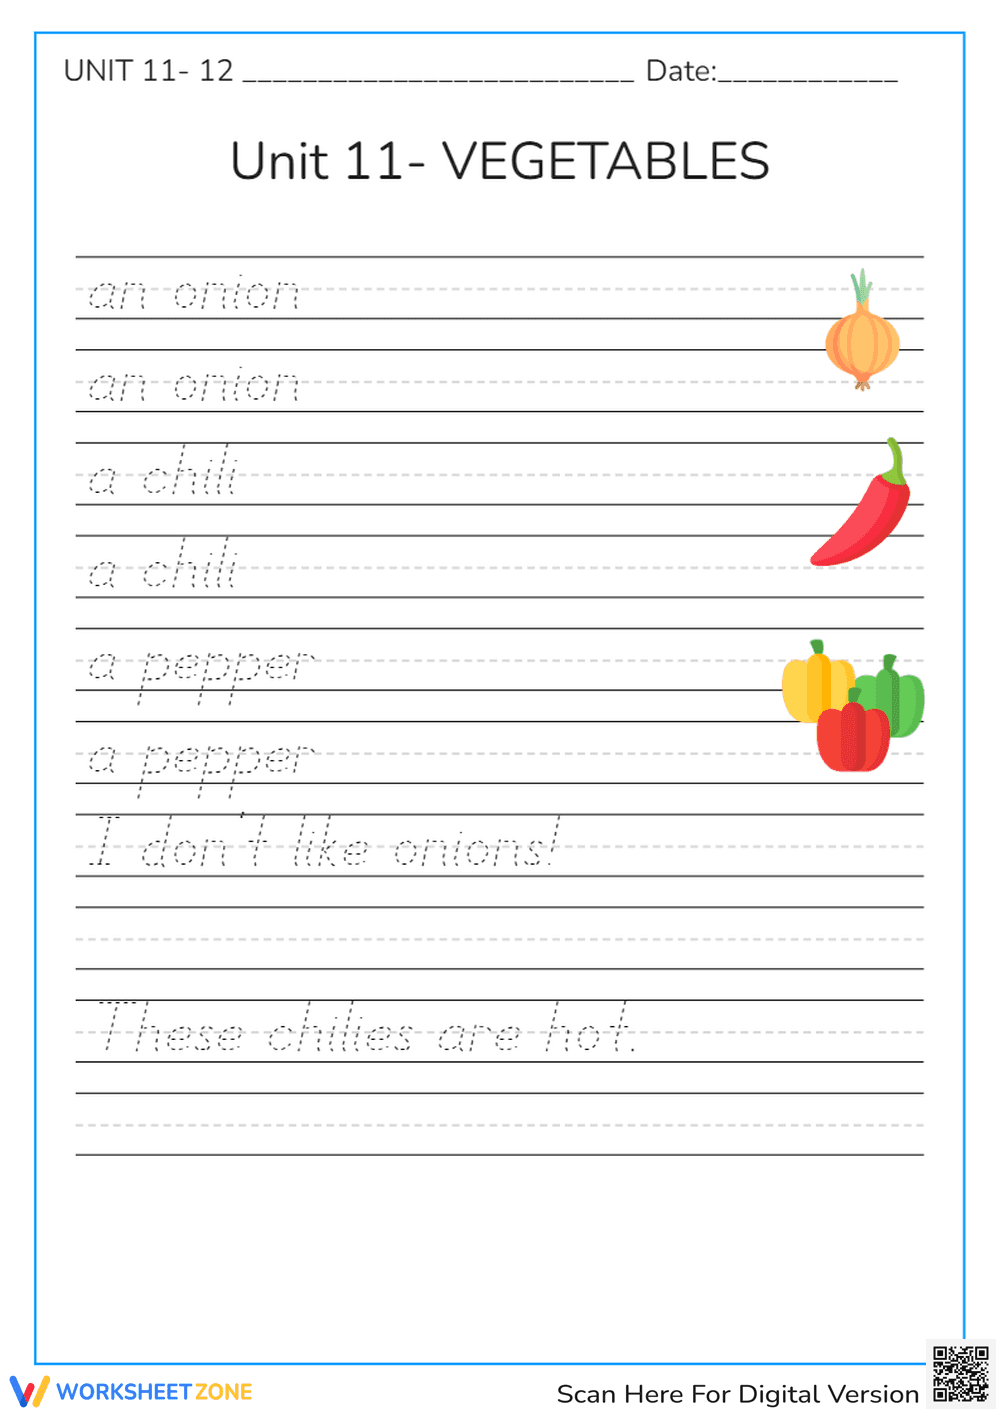 UNIT 11- 12 __________________________ Date:____________
Unit 11- VEGETABLES
an onion
an onion
a chili
a chili
a pepper
a pepper
I don't like onions!
These chilies are hot.
WORKSHEETZONE
Scan Here For Digital Version